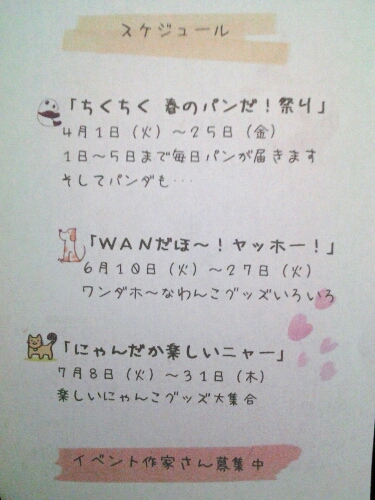 スケジュール
「ちくちく 春のパンだ！祭り」
4月1日（火）～25日（金）
1日～5日まで毎日パンが届きます
そしてパンダも…
「WANだほ～！ヤッホー！」
6月10日（火）～27日（火）
ワンダホ～なわんこグッズいろいろ
「にゃんだか楽しいニャー」
7月8日（火）～31日（木）
楽しいにゃんこグッズ大集合
イベント作家さん募集中